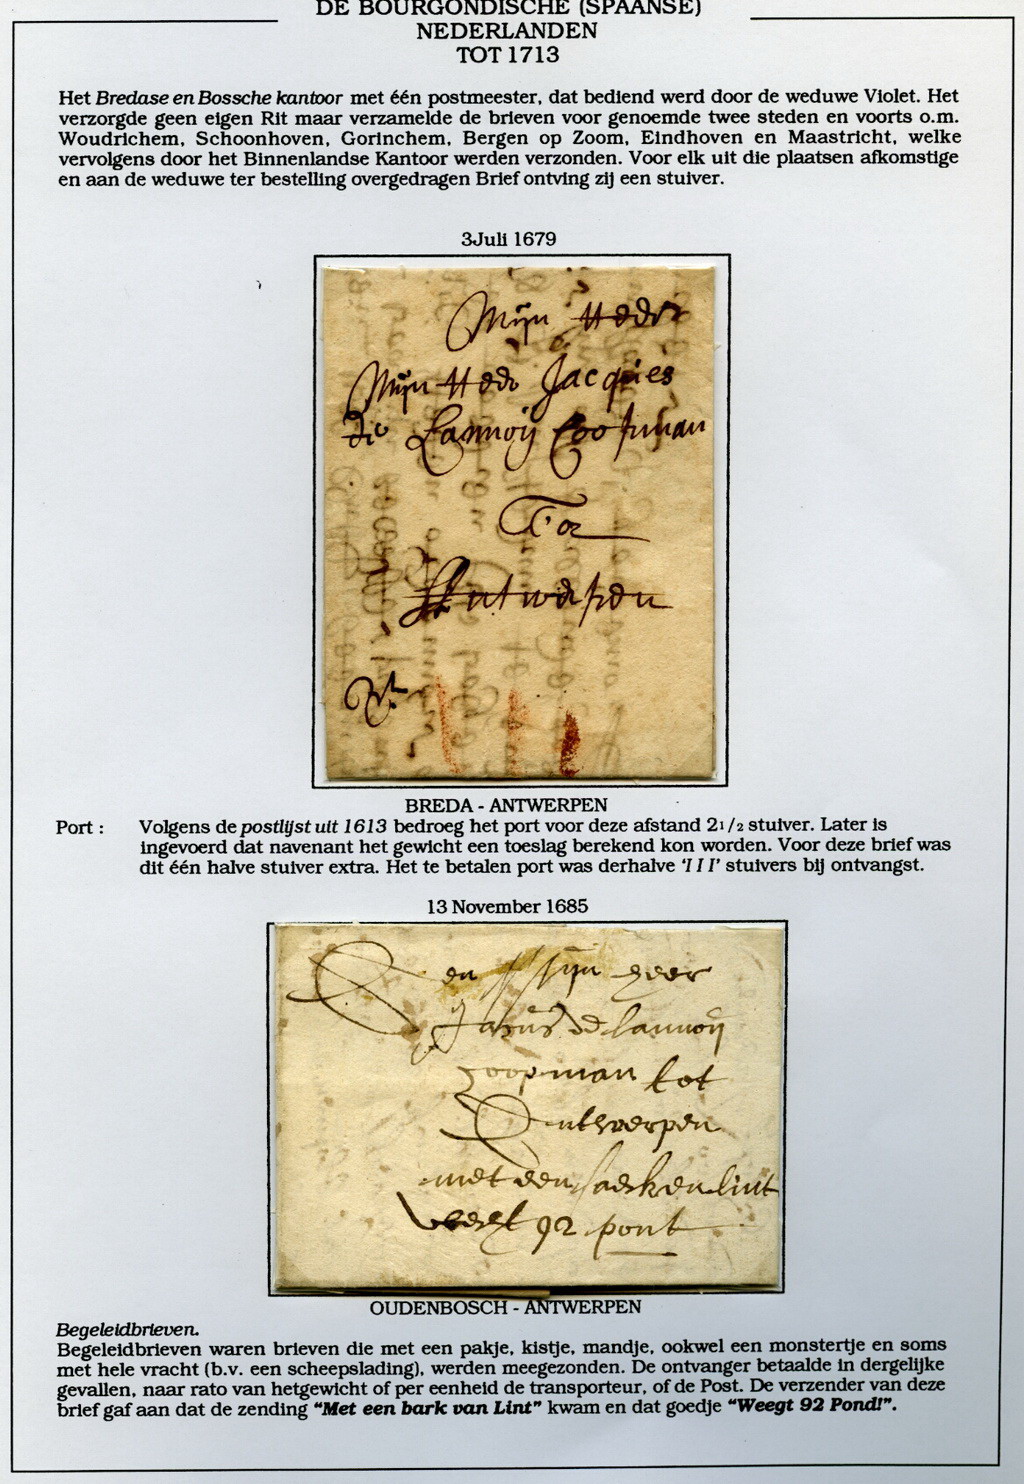 DE BOURGONDISCHE (SPAANSE)
NEDERLANDEN
TOT 1713
Het Bredase en Bossche kantoor met één postmeester, dat bediend werd door de weduwe Violet. Het
verzorgde geen eigen Rit maar verzamelde de brieven voor genoemde twee steden en voorts o.m.
Woudrichem, Schoonhoven, Gorinchem, Bergen op Zoom, Eindhoven en Maastricht, welke
vervolgens door het Binnenlandse Kantoor werden verzonden. Voor elk uit die plaatsen afkomstige
en aan de weduwe ter bestelling overgedragen Brief ontving zij een stuiver.
3Juli 1679
Mijn Heer
Mijn Heer Jacques
de Lannoij Coopman
Tot
Antwerpen
BREDA - ANTWERPEN
Port : Volgens de postlijst uit 1613 bedroeg het port voor deze afstand 2 1/2 stuiver. Later is
ingevoerd dat navenant het gewicht een toeslag berekend kon worden. Voor deze brief was
dit één halve stuiver extra. Het te betalen port was derhalve 'I I I' stuivers bij ontvangst.
13 November 1685
en Mijn heer
de lannoij
coopman tot
Antwerpen
met een barken lint
weegt 92 pont
OUDENBOSCH - ANTWERPEN
Begeleidbrieven.
Begeleidbrieven waren brieven die met een pakje, kistje, mandje, ookwel een monstertje en soms
met hele vracht (b.v. een scheepslading), werden meegezonden. De ontvanger betaalde in dergelijke
gevallen, naar rato van hetgewicht of per eenheid de transporteur, of de Post. De verzender van deze
brief gaf aan dat de zending "Met een bark van Lint" kwam en dat goedje "Weegt 92 Pond!".